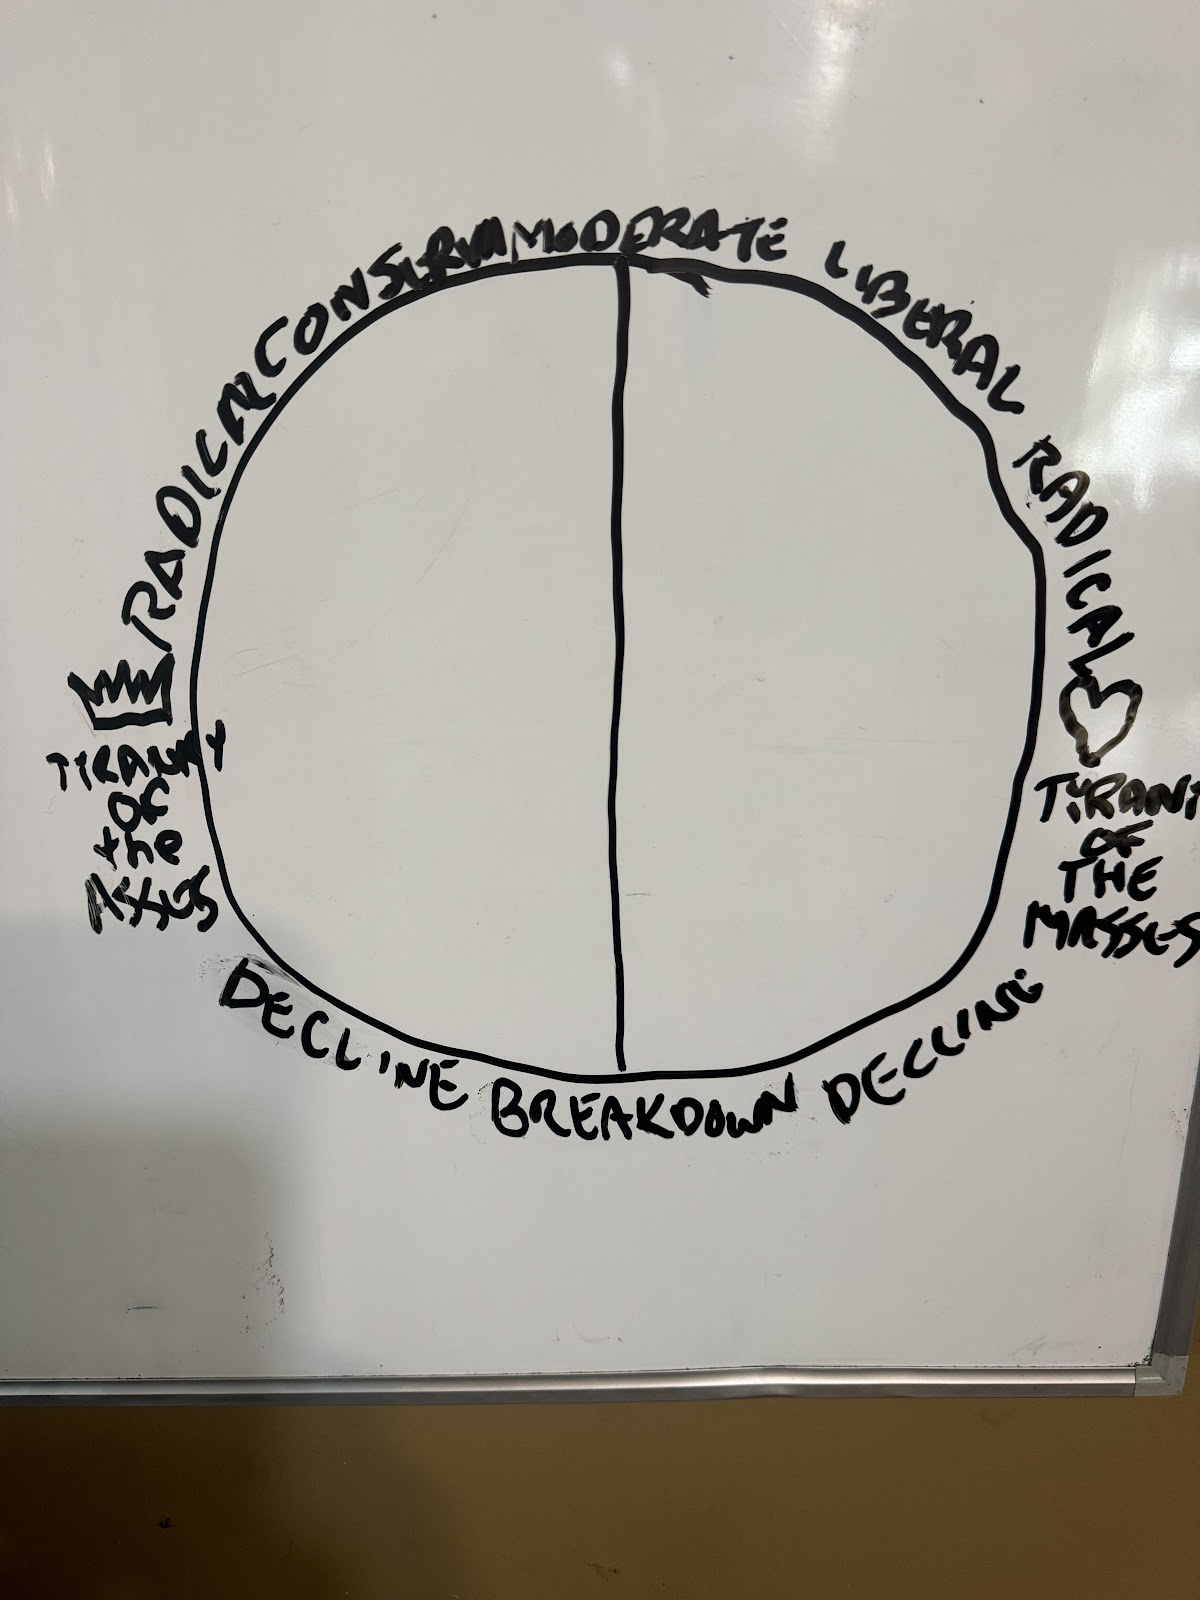 MODERATE
CONSERVA
RADICAL
TYRANNY
OF
the
ASSES
LIBERAL
RADICAL
TYRANY
OF
THE
MASSES
DECLINE
BREAKDOWN
DECLINE